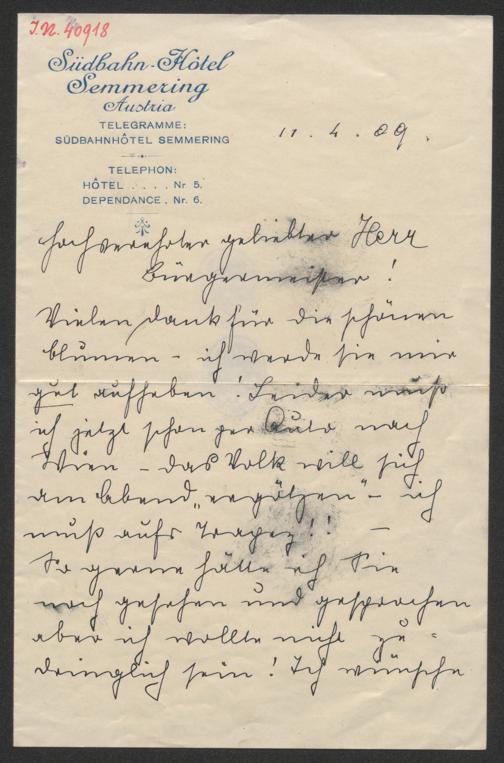 I.N. 40918
Südbahn-Hôtel
Semmering
Austria
TELEGRAMME:
SÜDBAHNHÔTEL SEMMERING
11. 4. 09.
TELEPHON:
HÔTEL . . . . Nr 5.
DEPENDANCE . Nr. 6.
Hochverehrter geliebter Herr
Bürgermeister!
Vielen Dank für die schönen
Blumen – ich werde sie mir
gut aufheben! Leider muß
ich jetzt schon per Auto nach
Wien – das Volk will sich
am Abend „ergötzen" – ich
muß aufs Trapez!! –
So gerne hätte ich Sie
noch gesehen und gesprochen
aber ich wollte nicht zu=
dringlich sein! Ich wünsche